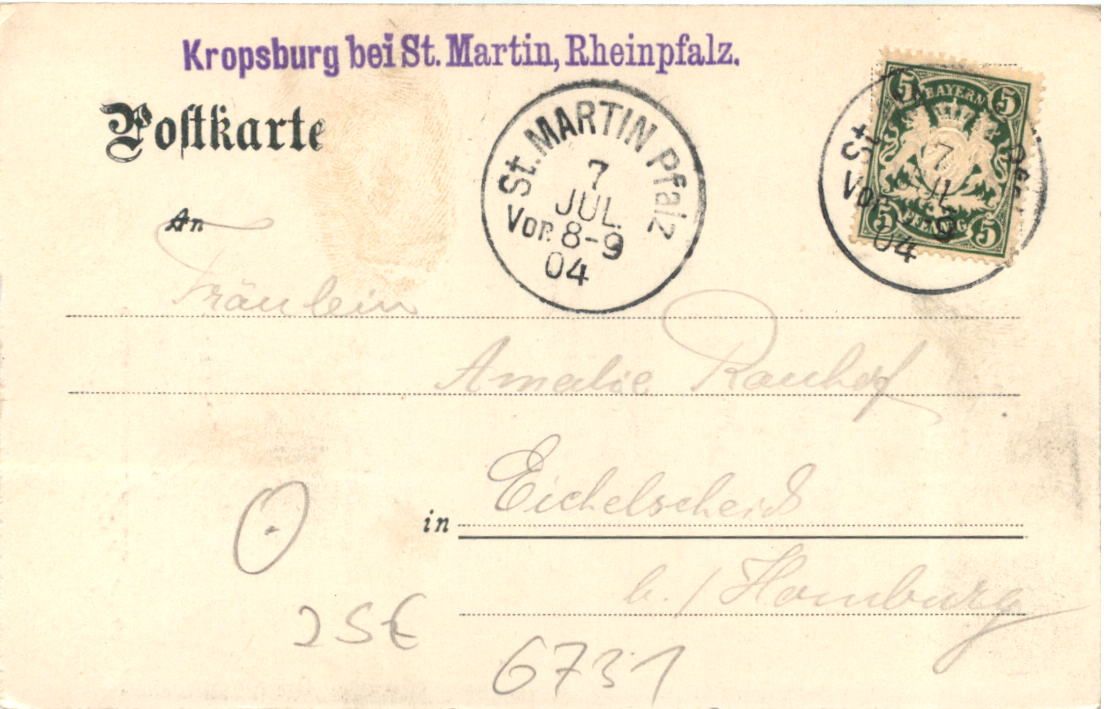 Kropsburg bei St. Martin, Rheinpfalz.
Postkarte
St. MARTIN Pfalz
7
JUL.
Vor. 8-9
04
5 BAYERN 5
5 PFENNIG 5
St.
7
Vor. 9
04
An
Fräulein
Amalie
in Eichelscheid
b./ Homburg
25€
6731